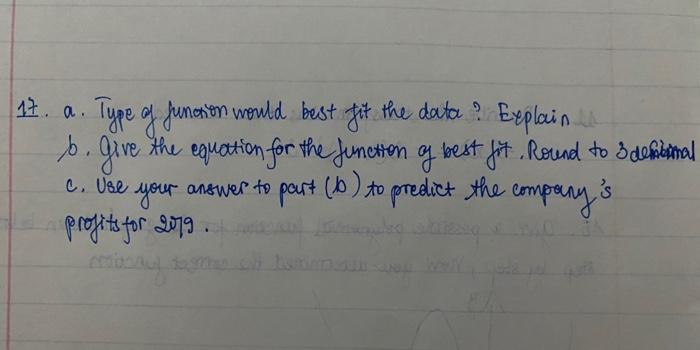 17. a. Type of function would best fit the data? Explain
b. Give the equation for the function of best fit. Round to 3 decimal
c. Use your answer to part (b) to predict the company's
profits for 2019.